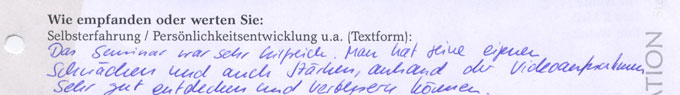 Wie empfanden oder werten Sie:
Selbsterfahrung / Persönlichkeitsentwicklung u.a. (Textform):
Das Seminar war sehr hilfreich. Man hat seine eigenen
Schwächen und auch Stärken, anhand der Videoaufnahmen
sehr gut entdecken und verbessern können.
ATION